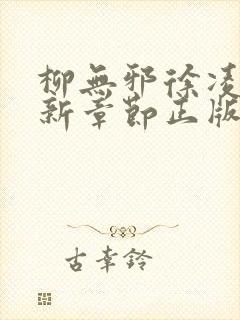 柳無邪徐凌
新章節正版
古幸鈴